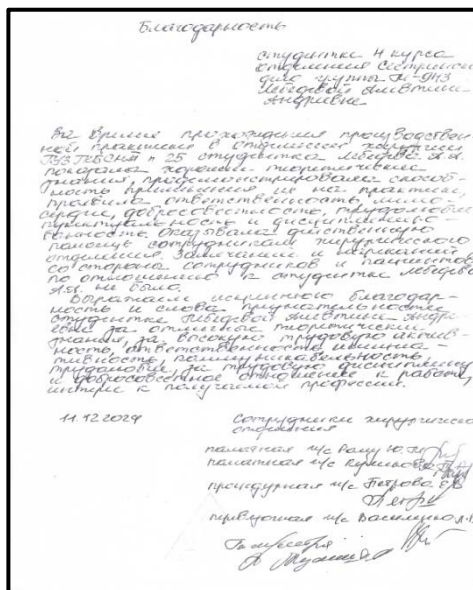 Благодарность
студентке 4 курса
отделения Сестринское
дело группы
Лебедевой Алевтине
Андреевне
За время прохождения производствен
ной практики в отделении хирургии
№ 25 студентка Лебедева А.А.
показала хорошие теоретические
знания, продемонстрировала способ-
ность применения их на практике,
проявила ответственность, мило-
сердие, добросовестность, трудолюбие,
пунктуальность и дисциплиниро-
ванность, оказывала действенную
помощь сотрудникам хирургического
отделения. Замечаний и нареканий
со стороны сотрудников и пациентов
по отношению к студентке Лебедевой
А.А. не было.
Выражаем искреннюю благодар-
ность и слова признательности
студентке Лебедевой Алевтине Андре-
евне за отличные теоретические
знания, за высокую трудовую актив-
ность, ответственность, инициа-
тивность, коммуникабельность,
трудолюбие, за трудовую дисциплину
и добросовестное отношение к работе,
интерес к получаемой профессии.
11.12.2024
Сотрудники хирургического
отделения
палатная м/с
палатная м/с
процедурная м/с Петрова
перевязочная м/с Василенко